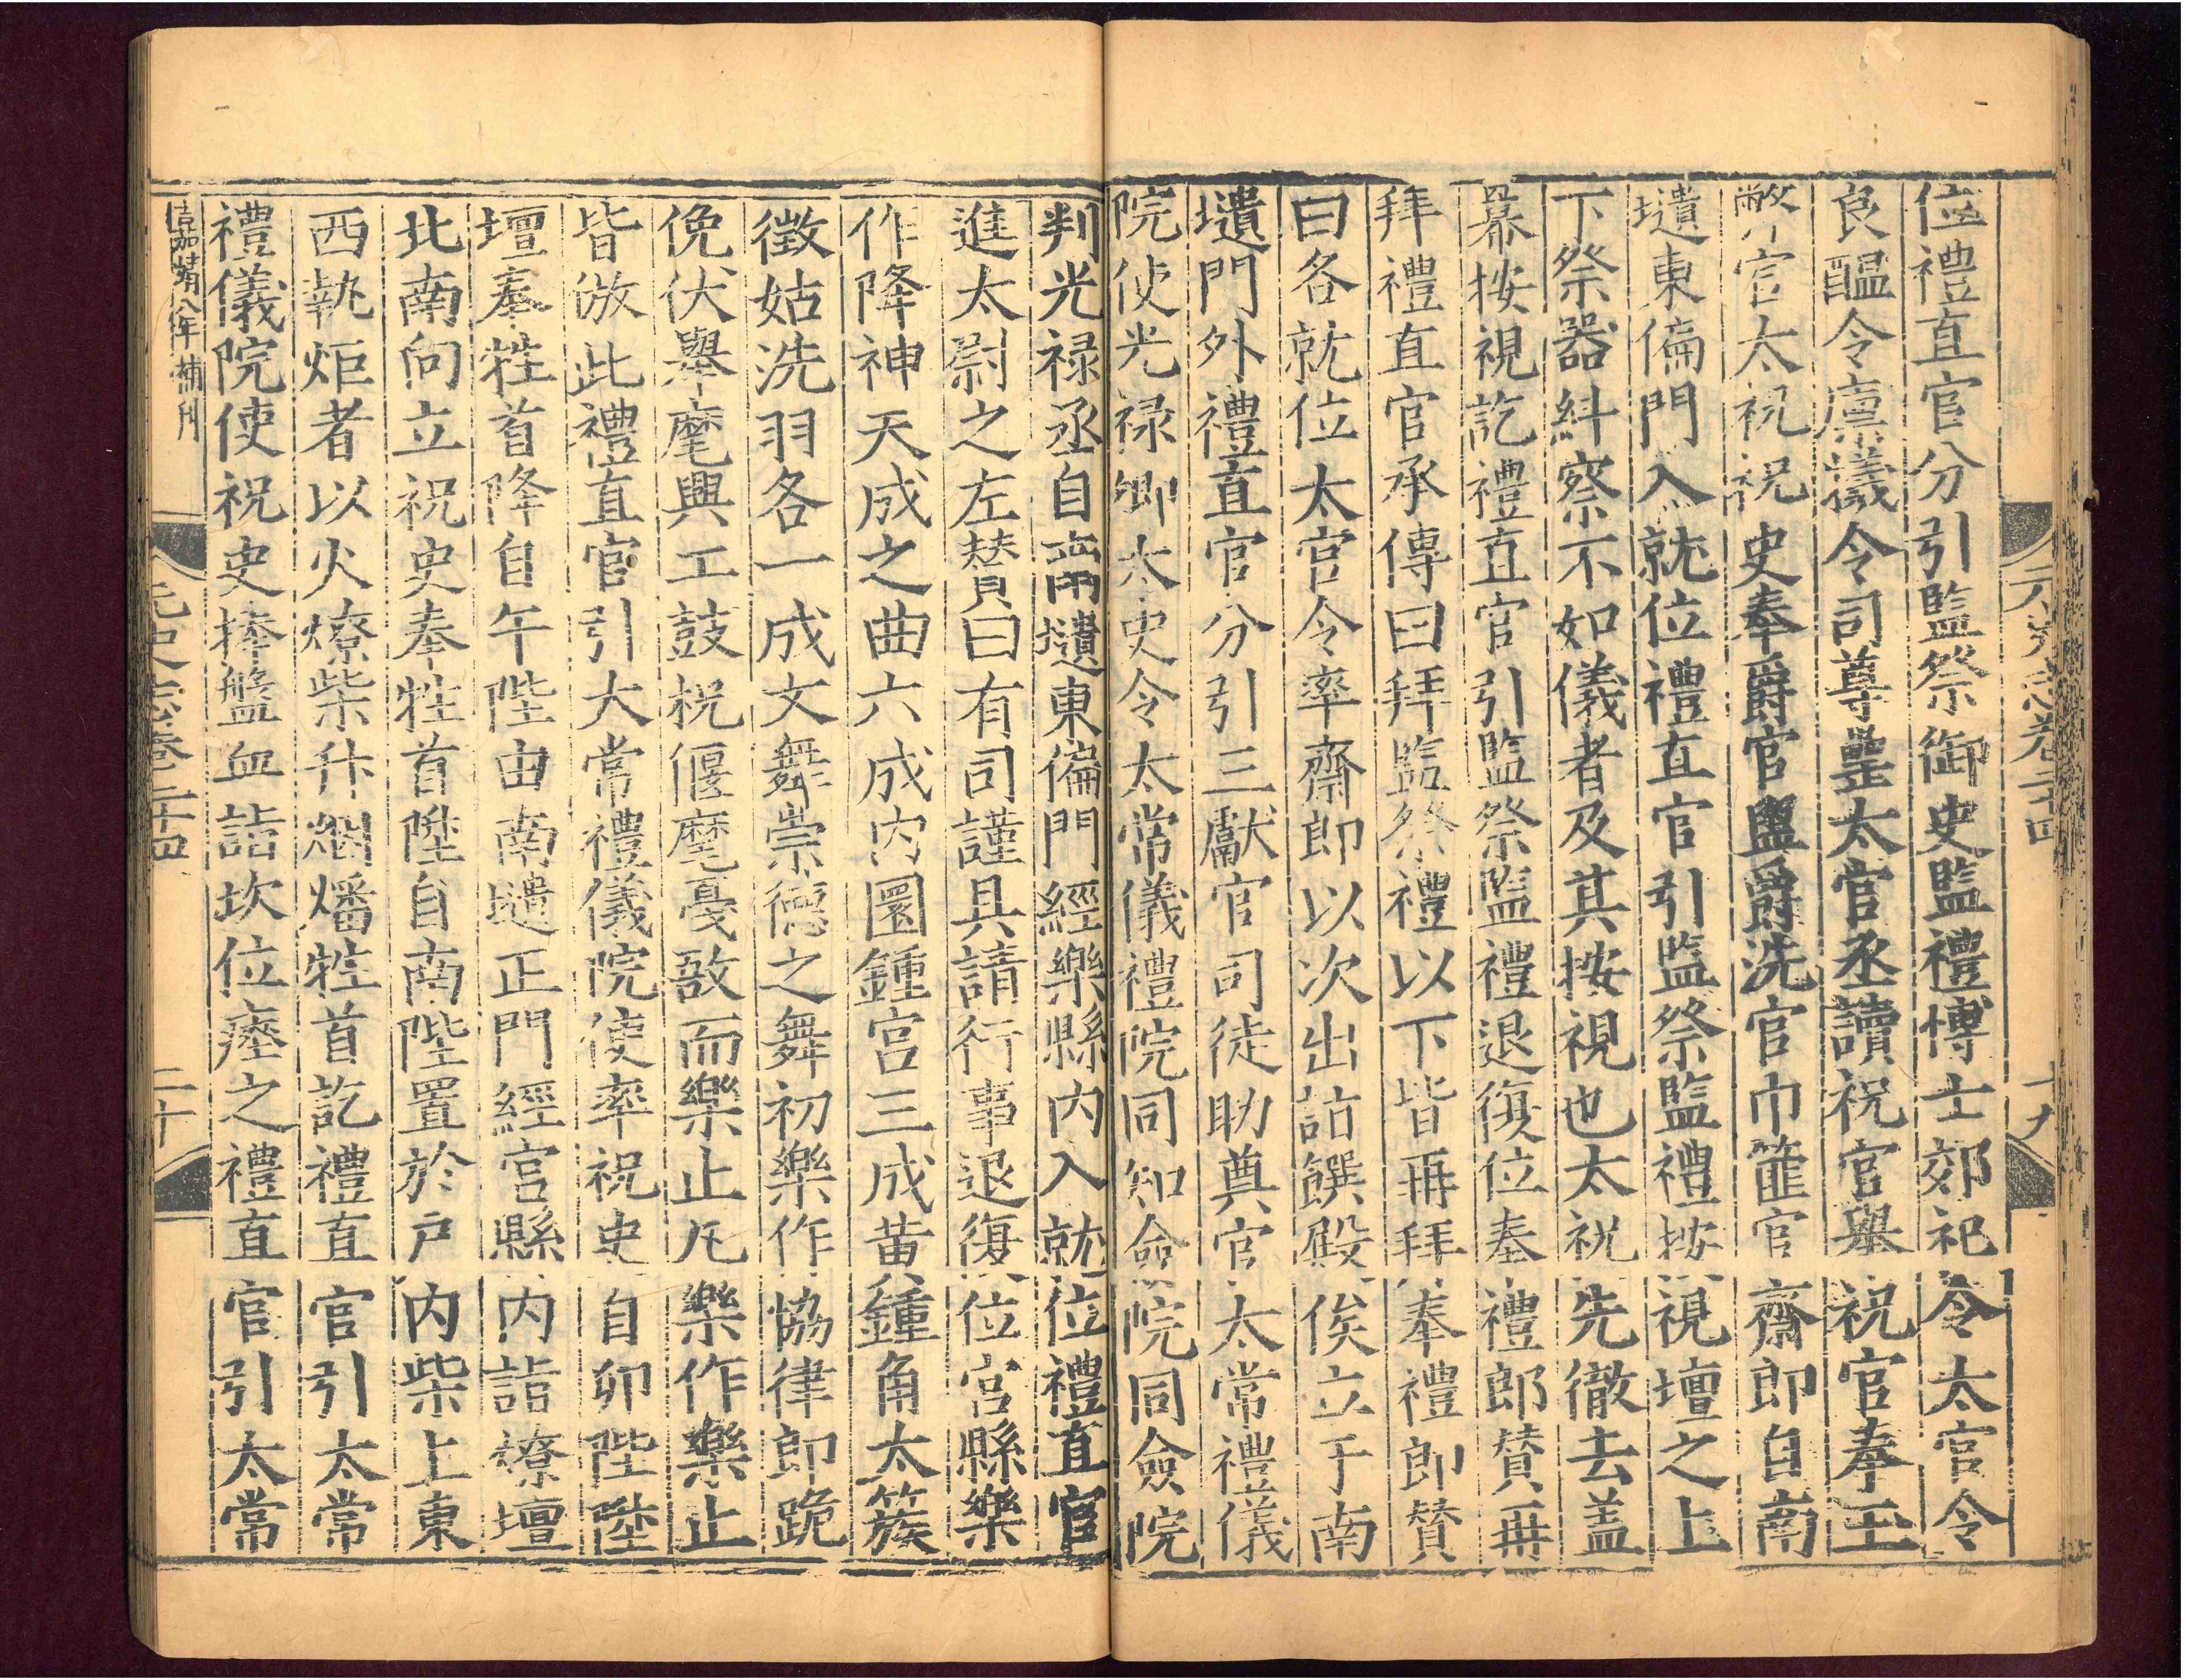 元史志卷二十四
十九
位禮直官分引監祭御史監禮博士郊祀令太官令
良醞令廩犧令司尊罍太官丞讀祝官舉祝官奉玉
幣官太祝祝史奉爵官盥爵洗官巾篚官齋郎自南
壝東偏門入就位禮直官引監祭監禮按視壇之上
下祭器糾察不如儀者及其按視也太祝先徹去盖
冪按視訖禮直官引監祭監禮退復位奉禮郎贊再
拜禮直官承傳曰拜監祭禮以下皆再拜奉禮郎贊
曰各就位太官令率齋郎以次出詣饌殿俟立于南
壝門外禮直官分引三獻官司徒助奠官太常禮儀
院使光禄卿太史令太常儀禮院同知僉院同僉院
判光禄丞自南壝東偏門經樂縣内入就位禮直官
進太尉之左賛曰有司謹具請行事退復位宫縣樂
作降神天成之曲六成内圜鍾宫三成黄鍾角太簇
徵姑洗羽各一成文舞崇德之舞初樂作協律郎跪
俛伏舉麾興工鼓柷偃麾戛敔而樂止凡樂作樂止
皆倣此禮直官引大常禮儀院使率祝史自卯陛陞
壇奉牲首降自午陛由南壝正門經宫縣内詣燎壇
北南向立祝史奉牲首陞自南陛置於户内柴上東
西執炬者以火燎柴升烟燔牲首訖禮直官引太常
禮儀院使祝史捧盤血詣坎位瘞之禮直官引太常
嘉靖八年補刊
元史志卷二十四
二十